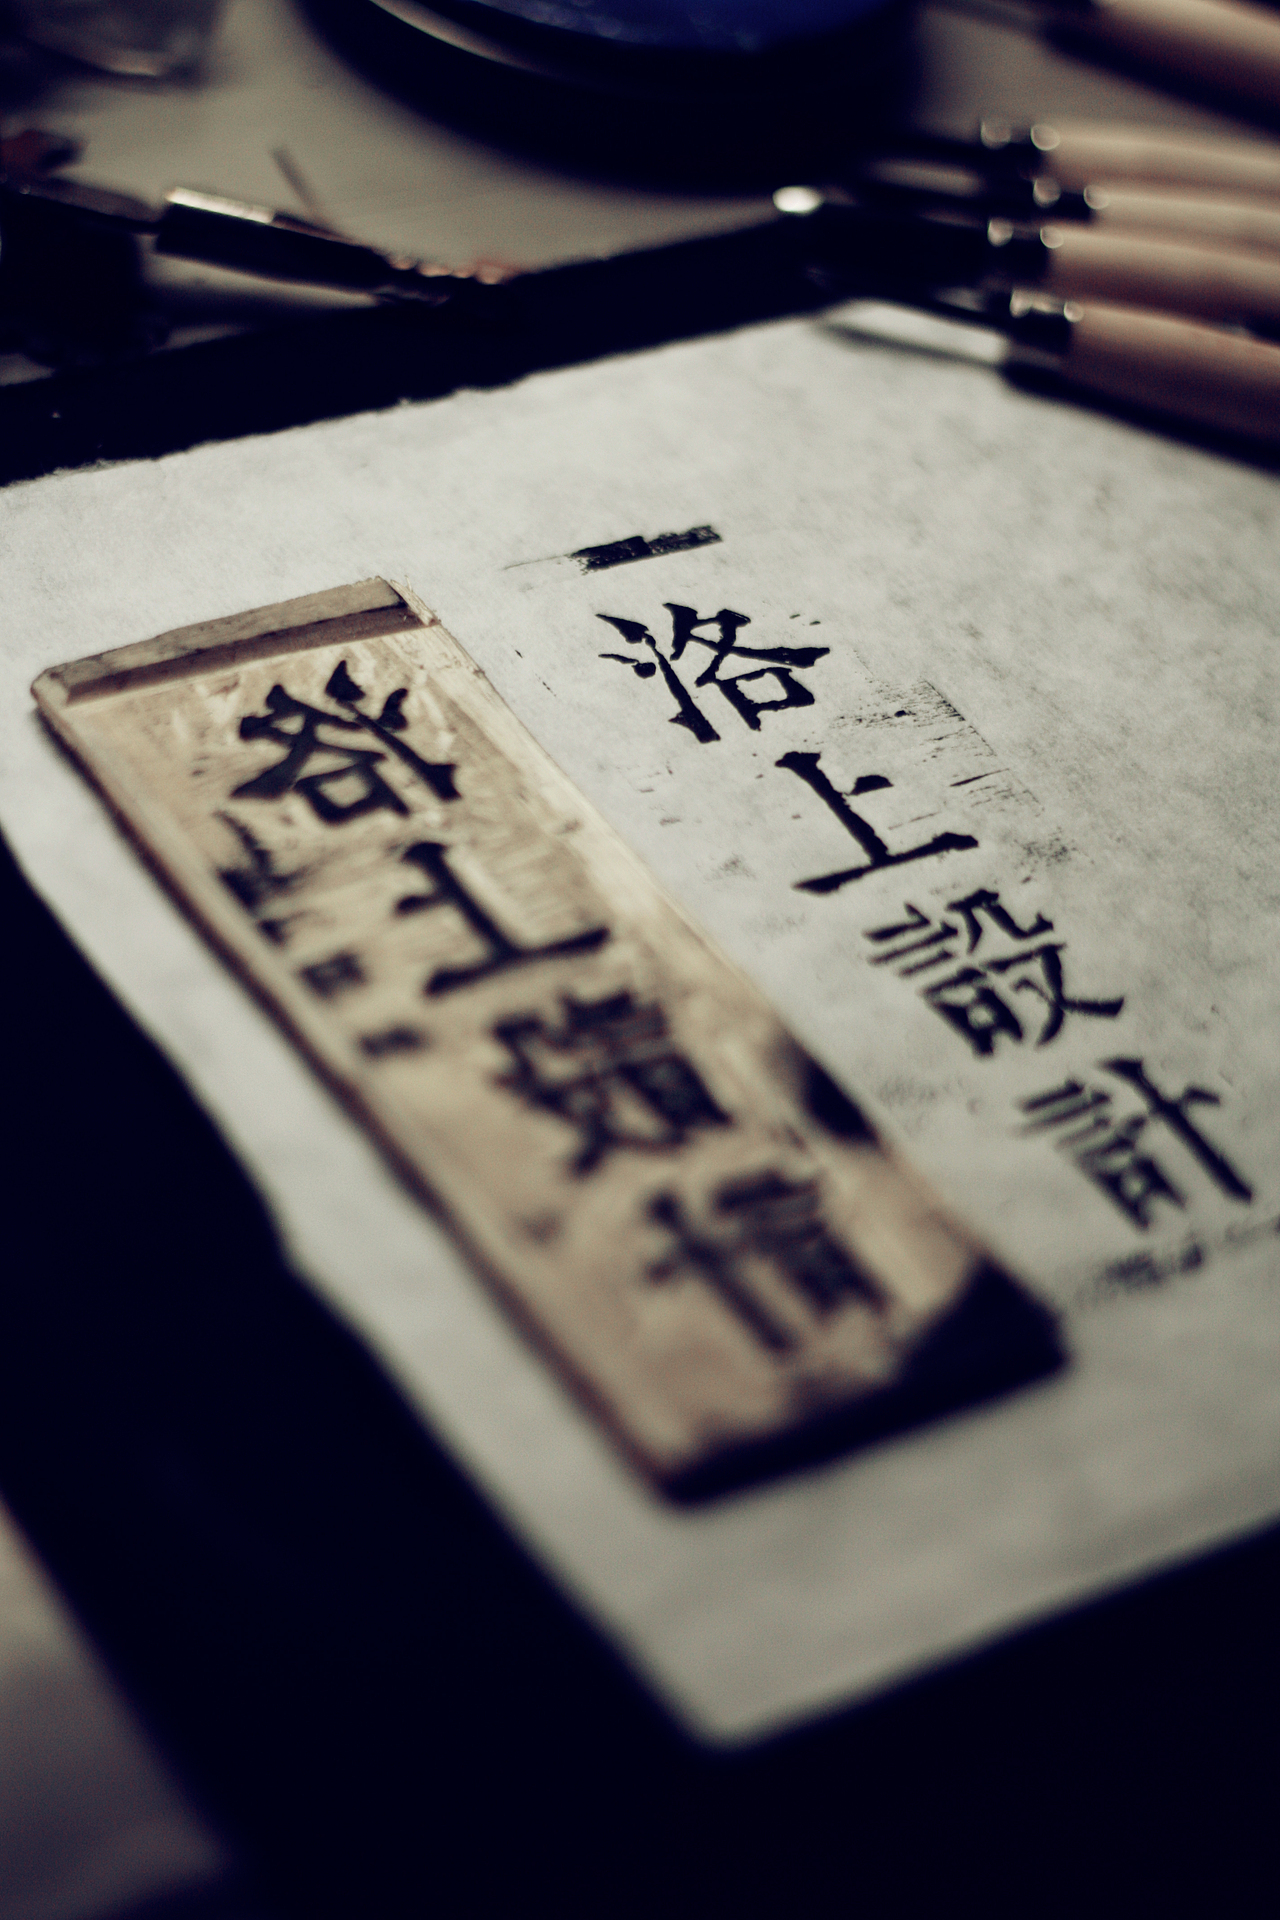 洛上設計
洛上設計